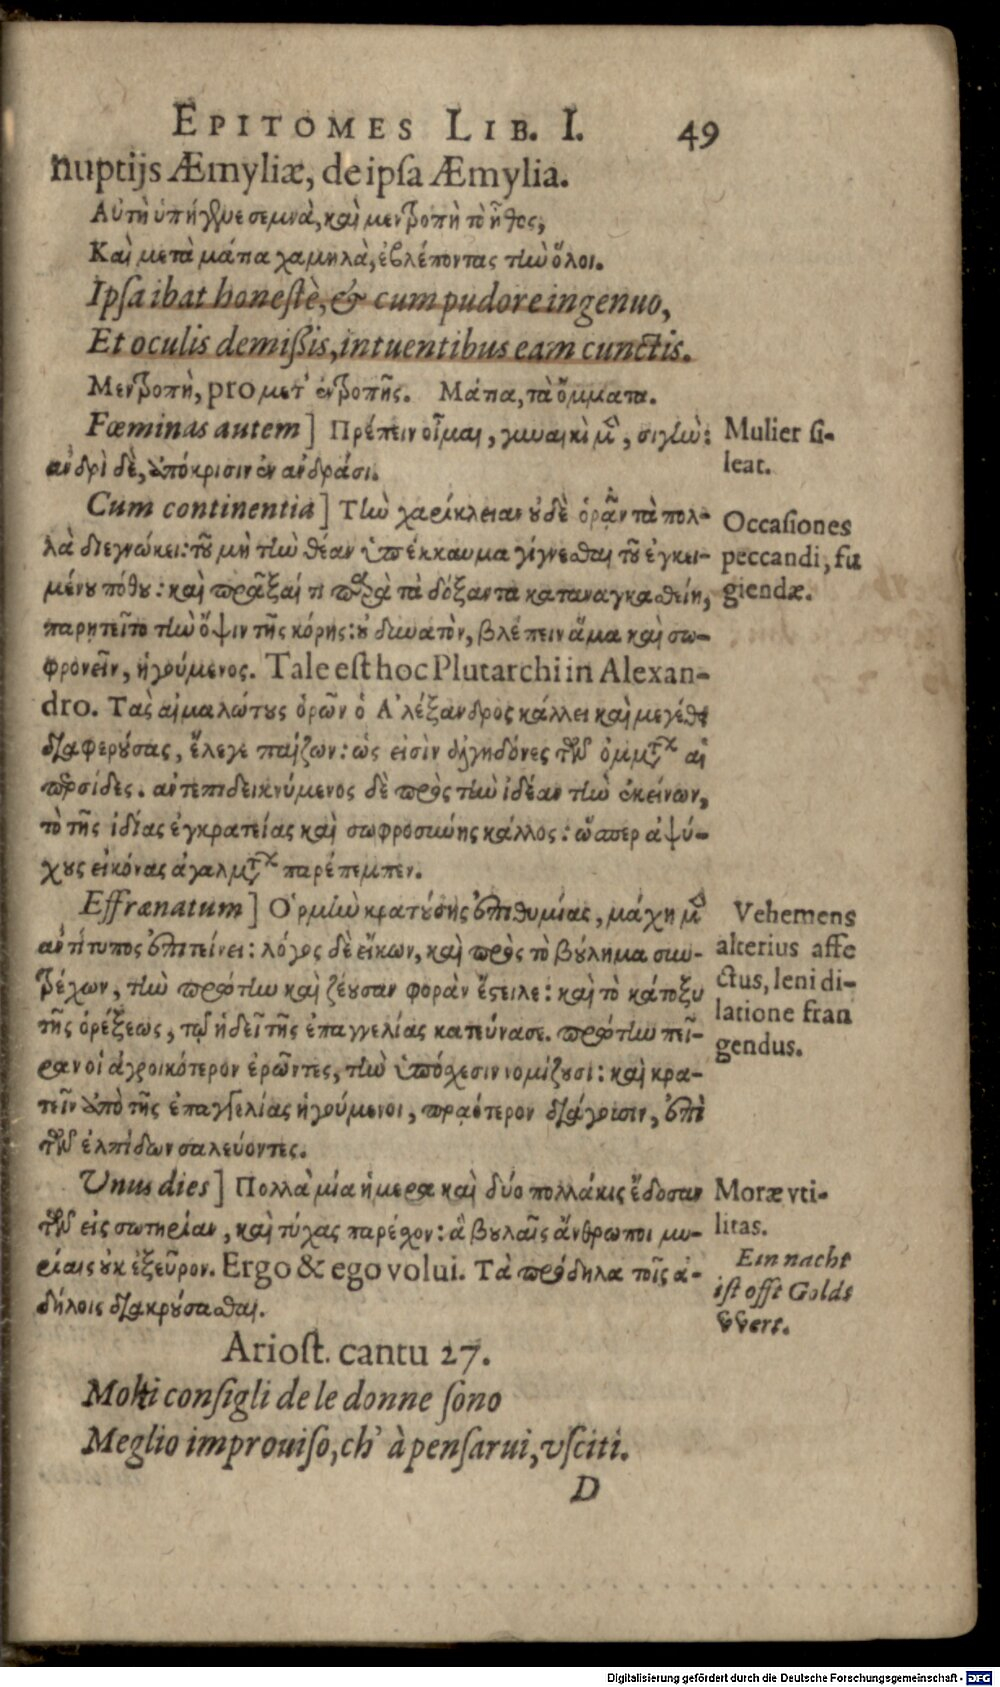 EPITOMES LIB. I. 49
nuptijs Æmyliæ, de ipſa Æmylia.
Αὐτὴ ὑπήγαινε σεμνὰ, καὶ μεντροπὴ τὸ ἦθος,
Καὶ μετὰ μάπα χαμηλὰ, ἐβλέποντας τὴν ὅλοι.
Ipſa ibat honeſtè, & cum pudore ingenuo,
Et oculis demiſsis, intuentibus eam cunctis.
Μεντροπὴ, pro μετ' ἐντροπῆς. Μάπα, τὰ ὄμματα.
Fœminas autem] Πρέπειν οἶμαι, γυναικὶ μὲν, σιγὴν:
ἀνδρὶ δὲ, ἀπόκρισιν ἐν ἀνδράσι.
Mulier ſi-
leat.
Cum continentia] Τὴν χαρίκλειαν οὐδὲ ὁρᾷν τὰ πολ-
λὰ διεγνώκει: τοῦ μὴ τὴν θέαν ὑπέκκαυμα γίγνεσθαι τοῦ ἐγκει-
μένου πόθου: καὶ πρᾶξαί τι παρὰ τὰ δόξαντα καταναγκασθείη,
παρῃτεῖτο τὴν ὄψιν τῆς κόρης: οὐ δυνατὸν, βλέπειν ἅμα καὶ σω-
φρονεῖν, ἡγούμενος. Tale eſt hoc Plutarchi in Alexan-
dro. Τὰς αἰχμαλώτους ὁρῶν ὁ Ἀλέξανδρος κάλλει καὶ μεγέθει
διαφερούσας, ἔλεγε παίζων: ὡς εἰσὶν ἀλγηδόνες τῶν ὀμμάτων αἱ
περσίδες. ἀντεπιδεικνύμενος δὲ πρὸς τὴν ἰδέαν τὴν ἐκείνων,
τὸ τῆς ἰδίας ἐγκρατείας καὶ σωφροσύνης κάλλος: ὥσπερ ἀψύ-
χους εἰκόνας ἀγαλμάτων παρέπεμπεν.
Occaſiones
peccandi, fu
giendæ.
Effrænatum] Ὁρμὴν κρατούσης ἐπιθυμίας, μάχη μὲν
ἀντίτυπος ἐπιτείνει: λόγος δὲ εἴκων, καὶ πρὸς τὸ βούλημα συν-
τρέχων, τὴν πρώτην καὶ ζέουσαν φορὰν ἔστειλε: καὶ τὸ κάτοξυ
τῆς ὀρέξεως, τῷ ἡδεῖ τῆς ἐπαγγελίας κατεύνασε. πρώτην πεῖ-
ραν οἱ ἀγροικότερον ἐρῶντες, τὴν ὑπόσχεσιν νομίζουσι: καὶ κρα-
τεῖν ἀπὸ τῆς ἐπαγγελίας ἡγούμενοι, πραότερον διάγουσιν, ἐπὶ
τῶν ἐλπίδων σαλεύοντες.
Vehemens
alterius affe
ctus, leni di-
latione fran
gendus.
Unus dies] Πολλὰ μία ἡμέρα καὶ δύο πολλάκις ἔδοσαν
τῶν εἰς σωτηρίαν, καὶ τύχας παρέσχον: ἃ βουλαῖς ἄνθρωποι μυ-
ρίαις οὐκ ἐξεῦρον. Ergo & ego volui. Τὰ πρόδηλα τοῖς ἀ-
δήλοις διακρούσασθαι.
Moræ vti-
litas.
Ein nacht
iſt offt Golds
vvert.
Arioſt. cantu 27.
Molti conſigli de le donne ſono
Meglio improuiſo, ch' à penſarui, vſciti.
D
Digitalisierung gefördert durch die Deutsche Forschungsgemeinschaft - DFG